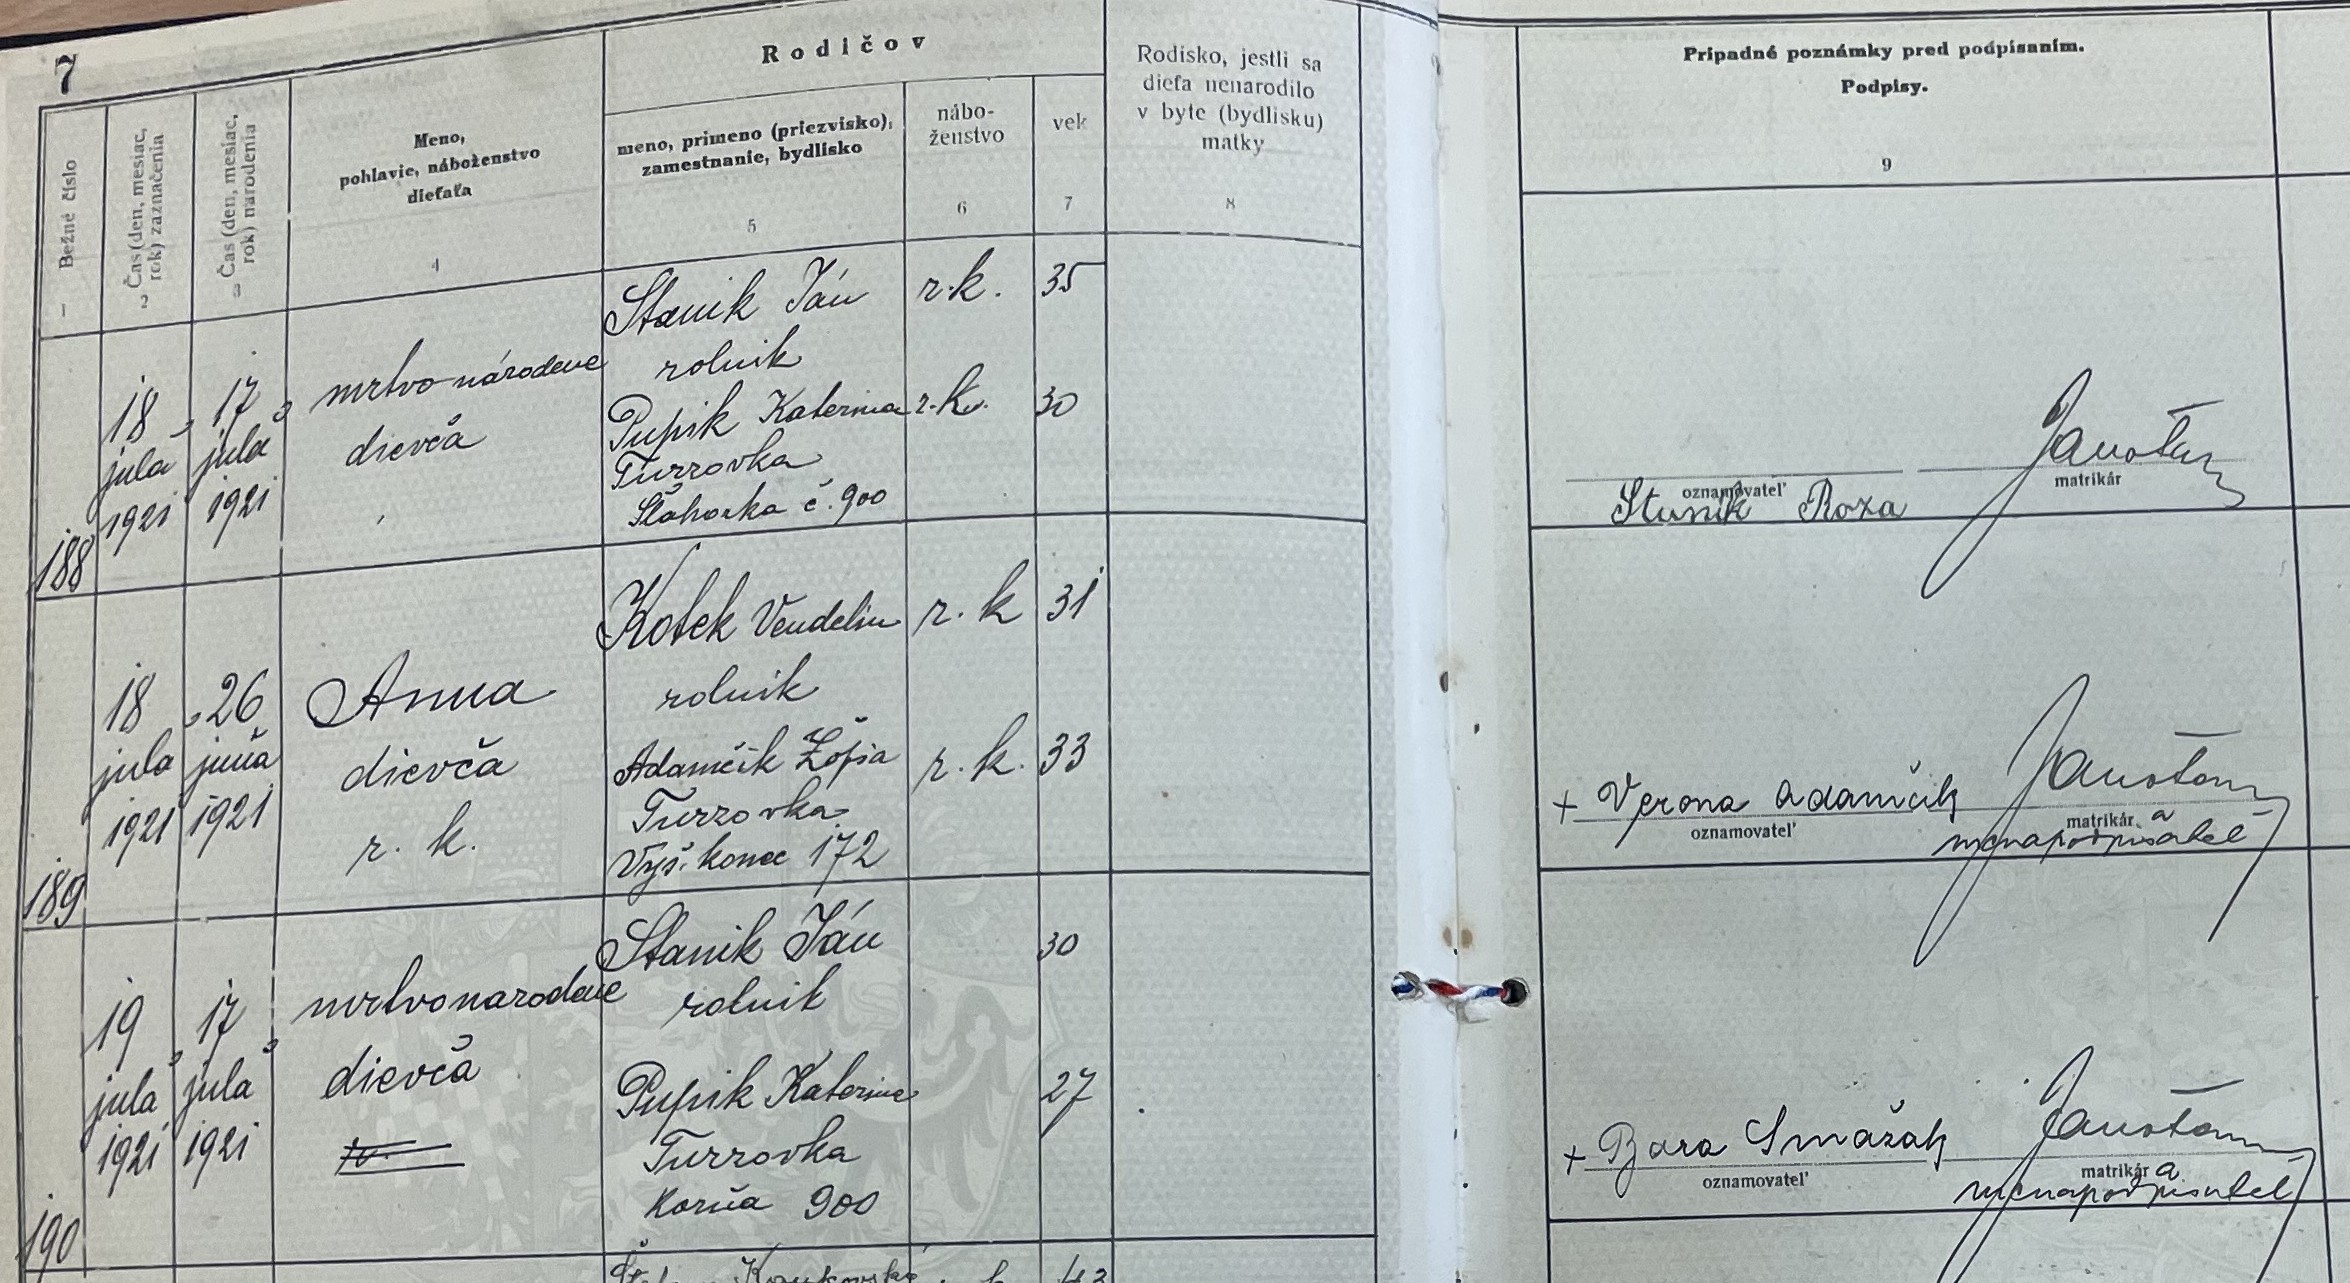 7
Rodičov
Bežné číslo
Čas (den, mesiac,
rok) zaznačenia
Čas (den, mesiac,
rok) narodenia
Meno,
pohlavie, náboženstvo
dieťaťa
meno, primeno (priezvisko),
zamestnanie, bydlisko
nábo-
ženstvo
vek
Rodisko, jestli sa
dieťa nenarodilo
v byte (bydlisku)
matky
Prípadné poznámky pred podpísaním.
Podpisy.
1
2
3
4
5
6
7
8
9
188
18
jula
1921
17
jula
1921
mrtvo národene
dievča
Stanik Ján
rolnik
Pupik Katerina
Turzovka
č. 900
r.k.
r.k.
35
30
oznamovateľ
Stanik Roza
matrikár
189
18
jula
1921
26
juna
1921
Anna
dievča
r. k.
Kotek Vendelin
rolnik
Adamčik Žofia
Turzovka
Vyš. konec 172
r. k
r. k.
31
33
+ Verona Adamčik
oznamovateľ
matrikár a
menapodpisateľ
190
19
jula
1921
17
jula
1921
mrtvonarodene
dievča
Stanik Ján
rolnik
Pupik Katerina
Turzovka
Korňa 900
30
27
+ Bara Smažak
oznamovateľ
matrikár a
menapodpisateľ